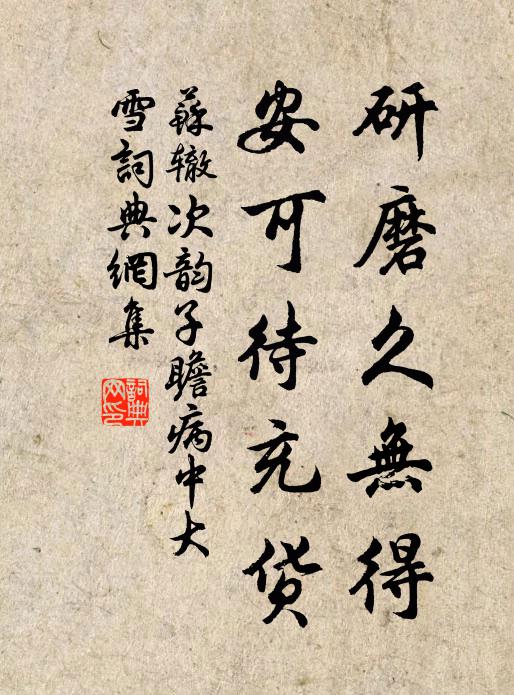 研磨久無得
安可待充货
蘇辙次韵子瞻病中大
雪詞典網集
詞典网印